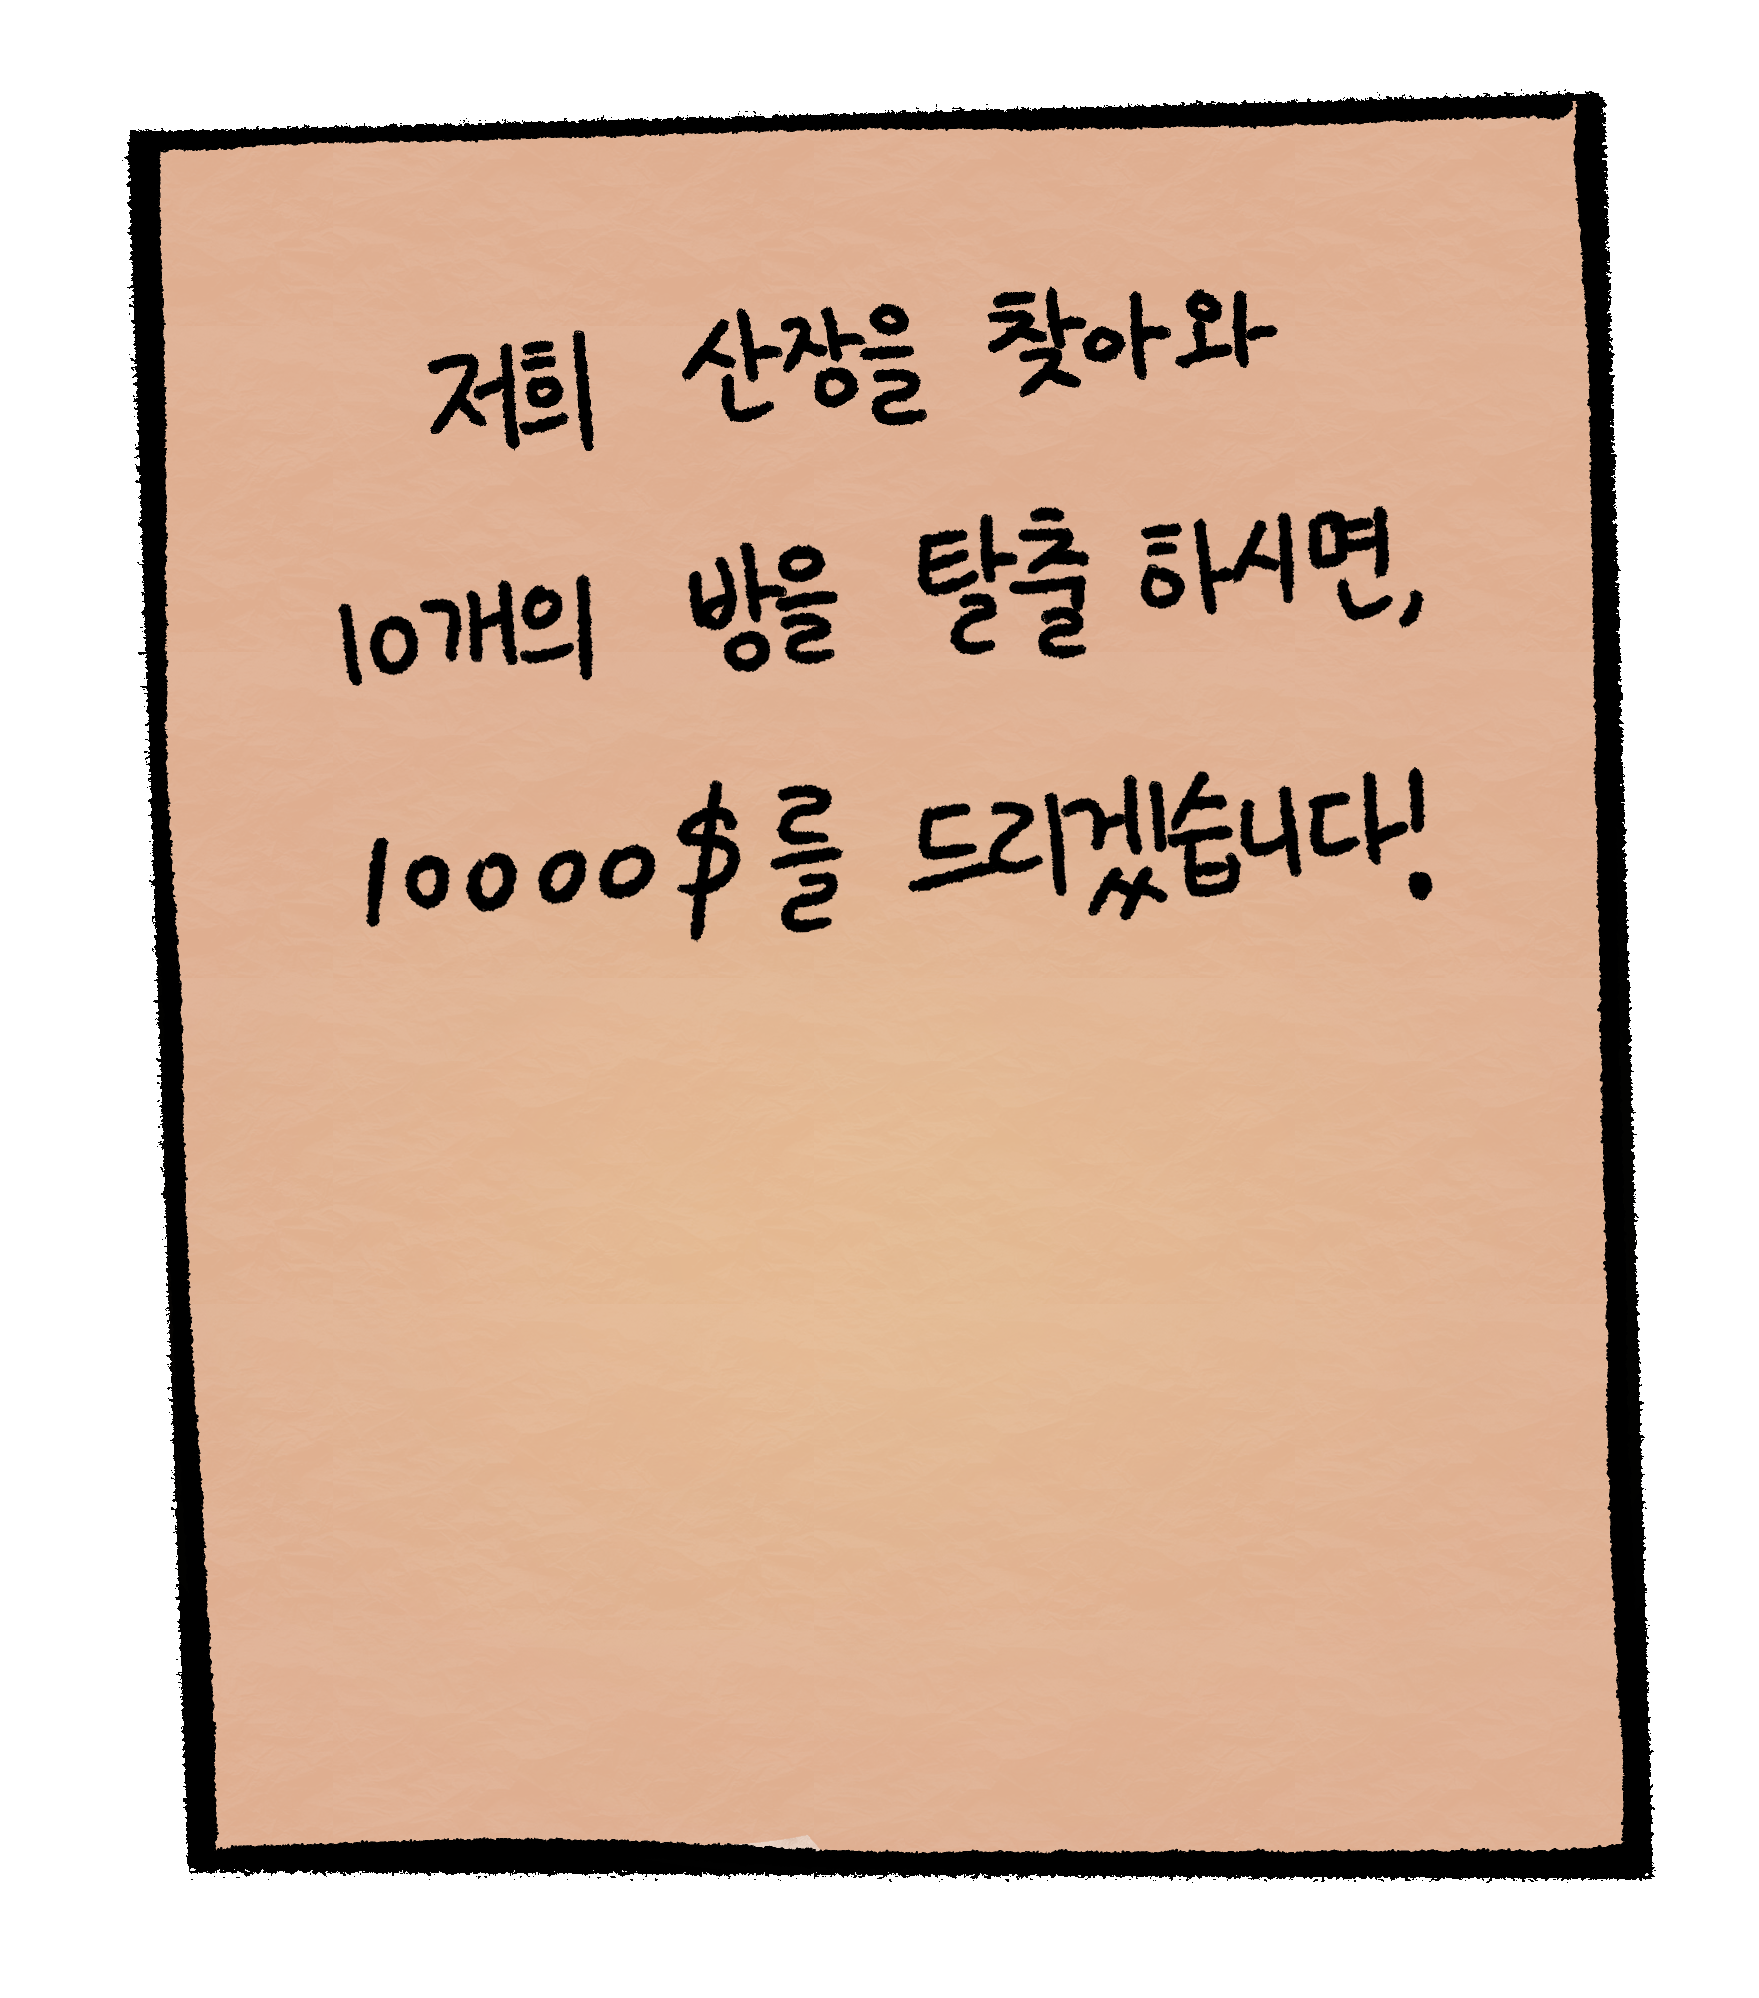 저희 산장을 찾아와
10개의 방을 탈출 하시면,
10000$를 드리겠습니다!